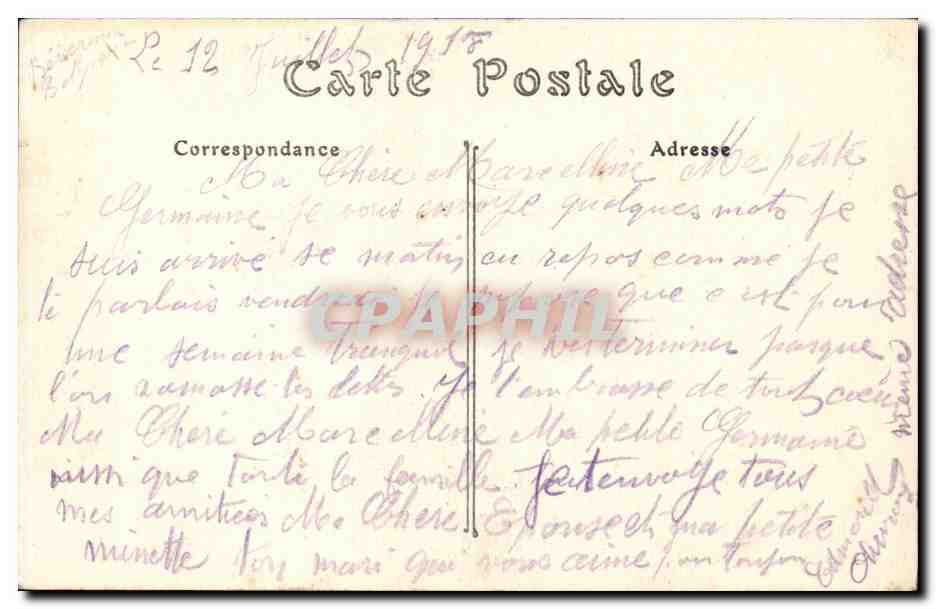 Le 12 Juillet 1917
Carte Postale
Correspondance
Adresse
Ma Chere Marcelline Ma petite
Germaine je vous envoye quelques mots je
suis arrivé se matin au repos comme je
te parlais vendredi je pense que c est pour
une semaine tranquil je vest terminer pasque
l'on ramasse les lettes. Je t'embrasse de tout coeur
Ma Chere Marcelline Ma petite Germaine
aussi que toute la famille. Je tenvoye tous
mes amitiées Ma Chere Epouse et ma petite
minette ton mari qui vous aime
meme adresse
CPAPHIL